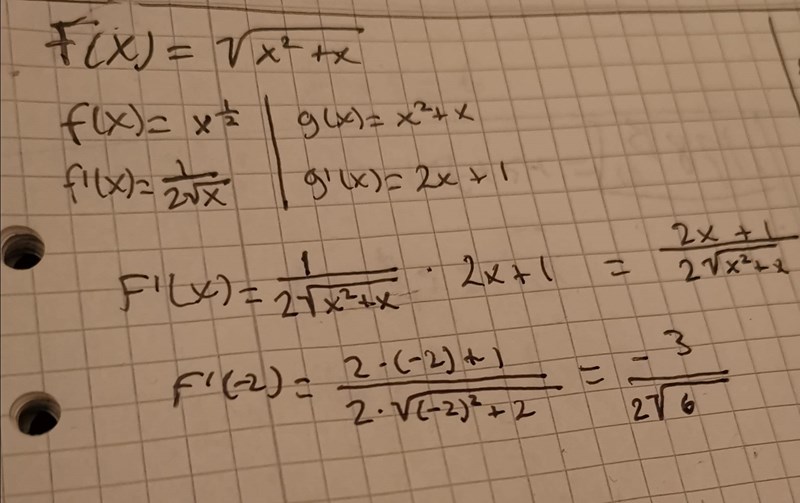 F(x) = √(x² + x)
f(x) = x^(1/2) | g(x) = x² + x
f'(x) = 1/(2√x) | g'(x) = 2x + 1
F'(x) = 1/(2√(x² + x)) · 2x + 1 = (2x + 1)/(2√(x² + x))
F'(-2) = (2·(-2) + 1)/(2·√((-2)² + 2)) = (-3)/(2√6)